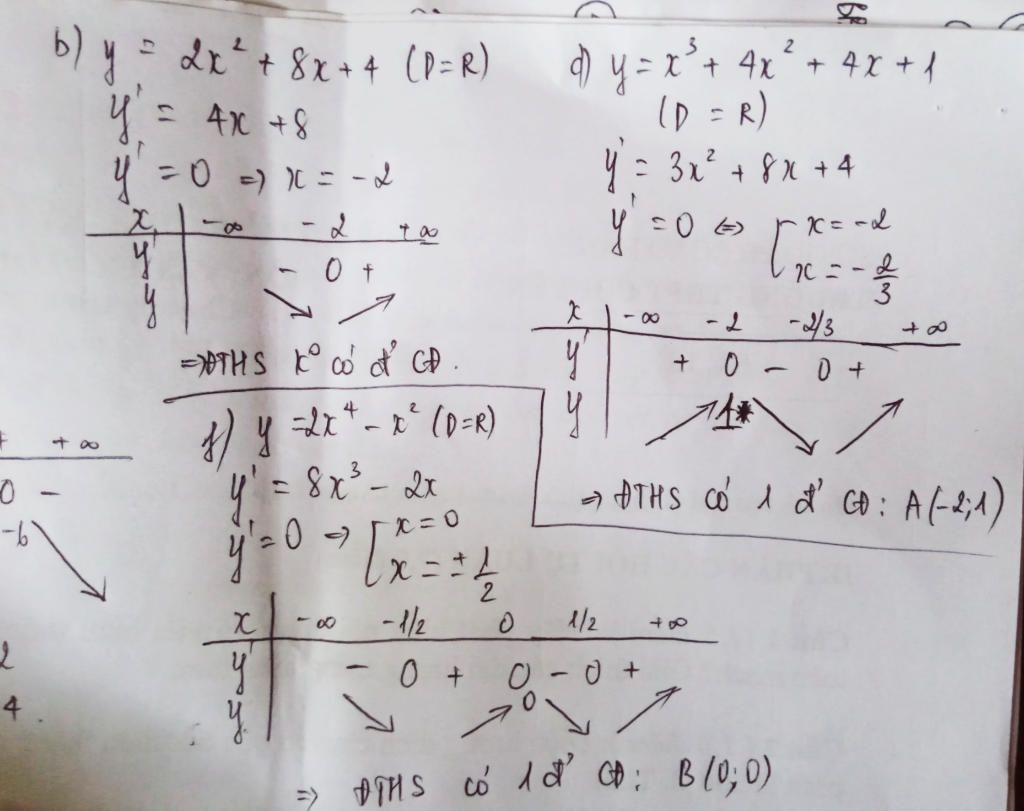 b) y = 2x² + 8x + 4 (D = R)
y' = 4x + 8
y' = 0 => x = -2
x -∞ -2 +∞
y' - 0 +
y
=> ĐTHS k° có đ' CĐ.
d) y = x³ + 4x² + 4x + 1
(D = R)
y' = 3x² + 8x + 4
y' = 0 <=> [ x = -2
x = -2/3
x -∞ -2 -2/3 +∞
y' + 0 - 0 +
y 1
=> ĐTHS có 1 đ' CĐ: A(-2;1)
f) y = 2x⁴ - x² (D=R)
y' = 8x³ - 2x
y' = 0 => [ x = 0
x = ± 1/2
x -∞ -1/2 0 1/2 +∞
y' - 0 + 0 - 0 +
y 0
=> ĐTHS có 1 đ' CĐ: B(0;0)
+∞
0 -
-6
2
4.